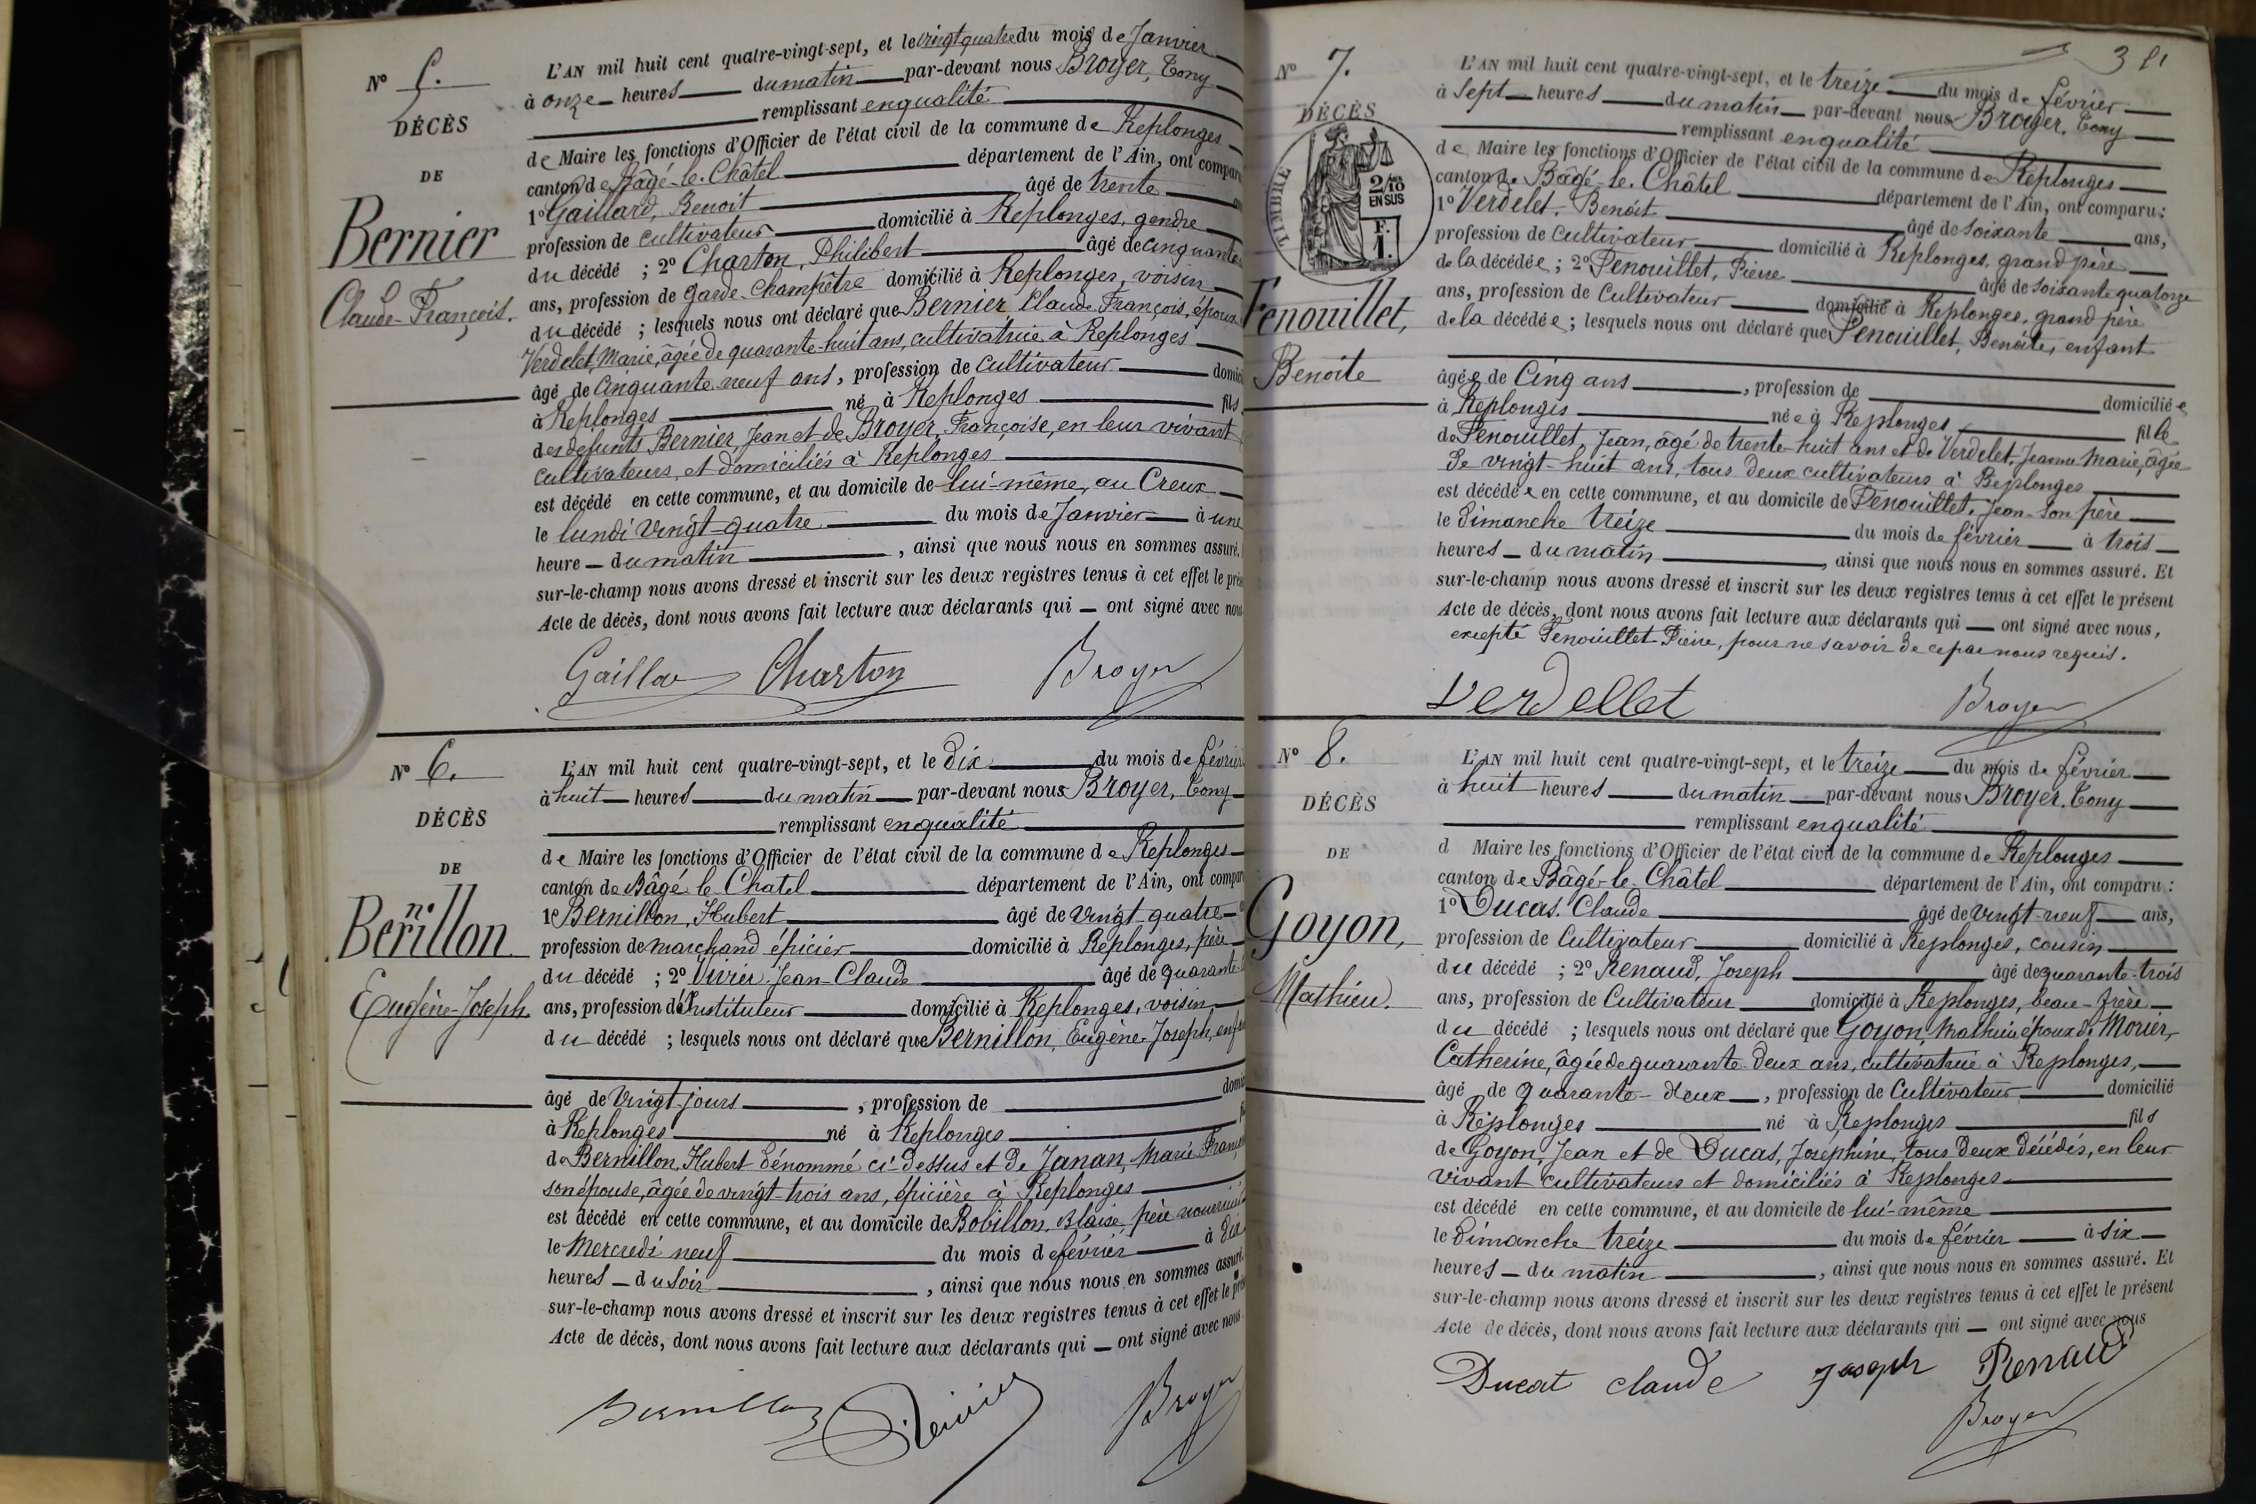 N° 5.
DÉCÈS
DE
Bernier
Claude-François.
L'AN mil huit cent quatre-vingt-sept, et le vingt quatre du mois de Janvier
à onze heures du matin par-devant nous Broyer, Tony
remplissant en qualité
de Maire les fonctions d'Officier de l'état civil de la commune de Replonges
canton de Bâgé-le-Châtel département de l'Ain, ont compar
1° Gaillard, Benoit âgé de trente
profession de cultivateur domicilié à Replonges, gendre
du décédé ; 2° Charton, Philibert âgé de cinquante
ans, profession de garde-champêtre domicilié à Replonges, voisin
du décédé ; lesquels nous ont déclaré que Bernier, Claude-François, époux
Verdelet, Marie, âgée de quarante-huit ans, cultivatrice à Replonges
âgé de cinquante-neuf ans, profession de cultivateur domici
à Replonges né à Replonges fils
des défunts Bernier, Jean et de Broyer, Françoise, en leur vivant
cultivateurs, et domiciliés à Replonges
est décédé en cette commune, et au domicile de lui-même, au Creux
le lundi vingt-quatre du mois de Janvier à une
heure du matin , ainsi que nous nous en sommes assuré.
sur-le-champ nous avons dressé et inscrit sur les deux registres tenus à cet effet le prés
Acte de décès, dont nous avons fait lecture aux déclarants qui ont signé avec nous
Gaillar Charton Broyer
N° 6.
DÉCÈS
DE
n.
Berillon
Eugène-Joseph.
L'AN mil huit cent quatre-vingt-sept, et le dix du mois de février
à huit heures du matin par-devant nous Broyer, Tony
remplissant en qualité
de Maire les fonctions d'Officier de l'état civil de la commune de Replonges
canton de Bâgé-le-Chatel département de l'Ain, ont compar
1° Bernillon, Hubert âgé de vingt-quatre
profession de marchand épicier domicilié à Replonges, père
du décédé ; 2° Vivier Jean-Claude âgé de quarante
ans, profession d'Instituteur domicilié à Replonges, voisin
du décédé ; lesquels nous ont déclaré que Bernillon, Eugène-Joseph, enfa
âgé de vingt-jours , profession de domici
à Replonges né à Replonges
de Bernillon, Hubert dénommé ci-dessus et de Janan, Marie
son épouse, âgée de vingt-trois ans, épicière à Replonges
est décédé en cette commune, et au domicile de Bobillon, Blaise, père nourricier
le Mercredi neuf du mois de février à dix
heures du soir , ainsi que nous nous en sommes assuré.
sur-le-champ nous avons dressé et inscrit sur les deux registres tenus à cet effet le prés
Acte de décès, dont nous avons fait lecture aux déclarants qui ont signé avec nous
Bernillon Vivier Broyer
381
N° 7.
DÉCÈS
TIMBRE
2/10
EN SUS
F.
1.
Fenouillet,
Benoite
L'AN mil huit cent quatre-vingt-sept, et le treize du mois de février
à sept heures du matin par-devant nous Broyer, Tony
remplissant en qualité
de Maire les fonctions d'Officier de l'état civil de la commune de Replonges
canton de Bâgé-le-Châtel département de l'Ain, ont comparu :
1° Verdelet, Benoit âgé de soixante ans,
profession de cultivateur domicilié à Replonges, grand père
de la décédée ; 2° Fenouillet, Pierre âgé de soixante quatorze
ans, profession de Cultivateur domicilié à Replonges, grand père
de la décédée ; lesquels nous ont déclaré que Fenouillet, Benoite, enfant
âgée de Cinq ans , profession de domiciliée
à Replonges née à Replonges fille
de Fenouillet, Jean, âgé de trente-huit ans et de Verdelet, Jeanne Marie, âgée
de vingt-huit ans, tous deux cultivateurs à Replonges
est décédée en cette commune, et au domicile de Fenouillet, Jean son père
le Dimanche treize du mois de février à trois
heures du matin , ainsi que nous nous en sommes assuré. Et
sur-le-champ nous avons dressé et inscrit sur les deux registres tenus à cet effet le présent
Acte de décès, dont nous avons fait lecture aux déclarants qui ont signé avec nous,
excepté Fenouillet Pierre, pour ne savoir de ce par nous requis.
Verdellet Broyer
N° 8.
DÉCÈS
DE
Goyon,
Mathieu.
L'AN mil huit cent quatre-vingt-sept, et le treize du mois de février
à huit heures du matin par-devant nous Broyer, Tony
remplissant en qualité
d Maire les fonctions d'Officier de l'état civil de la commune de Replonges
canton de Bâgé-le-Châtel département de l'Ain, ont comparu :
1° Ducas, Claude âgé de vingt-neuf ans,
profession de Cultivateur domicilié à Replonges, cousin
du décédé ; 2° Renaud, Joseph âgé de quarante-trois
ans, profession de Cultivateur domicilié à Replonges, beau-frère
du décédé ; lesquels nous ont déclaré que Goyon, Mathieu époux de Morier,
Catherine, âgée de quarante-deux ans, cultivatrice à Replonges,
âgé de quarante-deux , profession de Cultivateur domicilié
à Replonges né à Replonges fils
de Goyon, Jean et de Ducas, Joséphine, tous deux décédés, en leur
vivant cultivateurs et domiciliés à Replonges
est décédé en cette commune, et au domicile de lui-même
le Dimanche treize du mois de février à six
heures du matin , ainsi que nous nous en sommes assuré. Et
sur-le-champ nous avons dressé et inscrit sur les deux registres tenus à cet effet le présent
Acte de décès, dont nous avons fait lecture aux déclarants qui ont signé avec nous
Ducat claude Joseph Renaud
Broyer